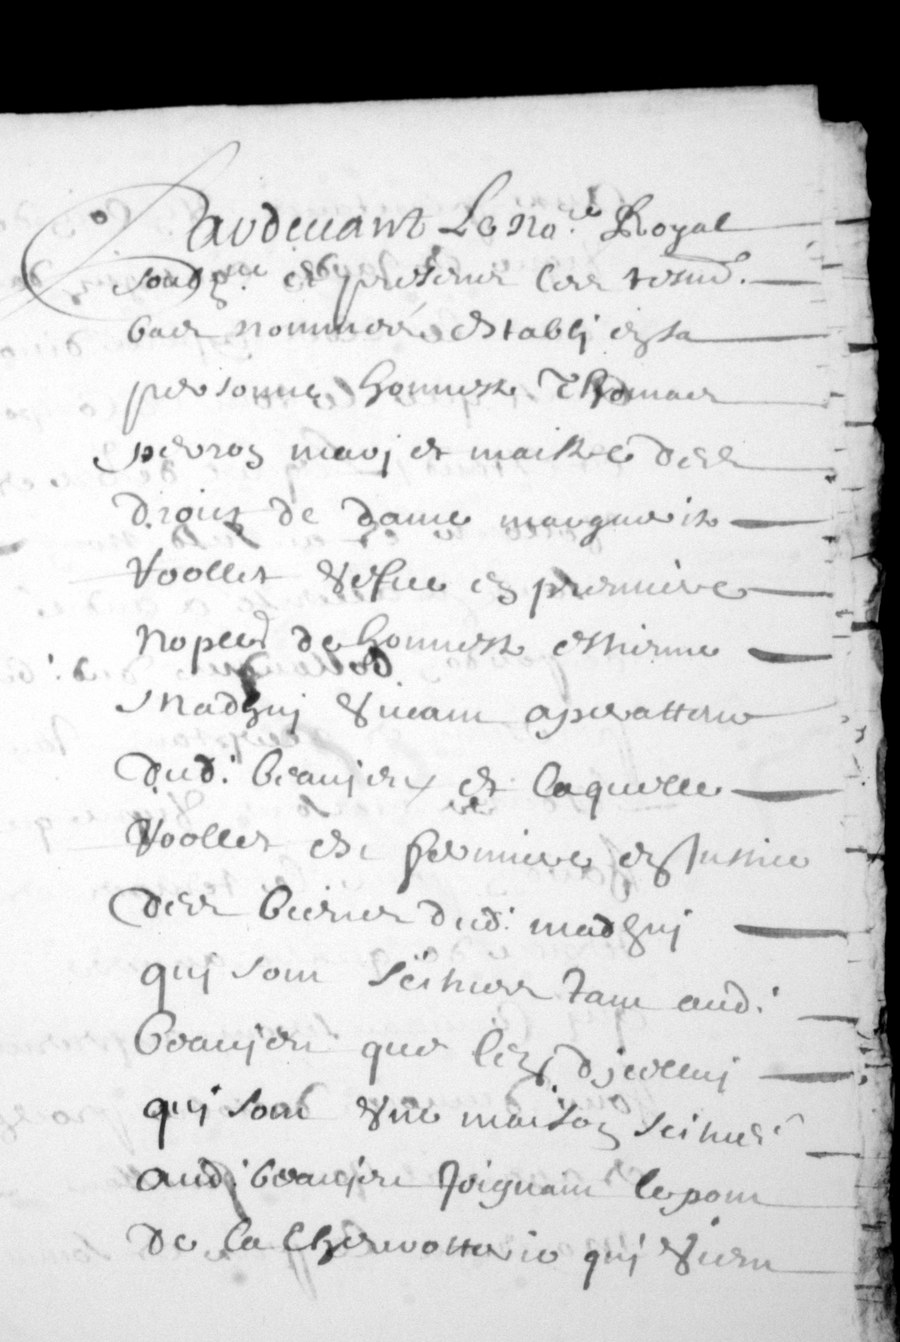 Pardevant Le no.re Royal
soubz.ne et presens les tesm.
bas nommés establi en sa
personne honneste Thomas
perron mary et maistre des
droitz de dame marguerite
Voollet vefue en premiere
nopces de honneste estienne
Madguy viuant apo
dud. beaujeu et laquelle
Voollet est fermiere en Justice
des biens dud. madguy
qui sont scitues tant aud.
beaujeu que lieux d'icelluy
qui sont vne maison scitue
aud. beaujeu joignant le pont
de la qui vient